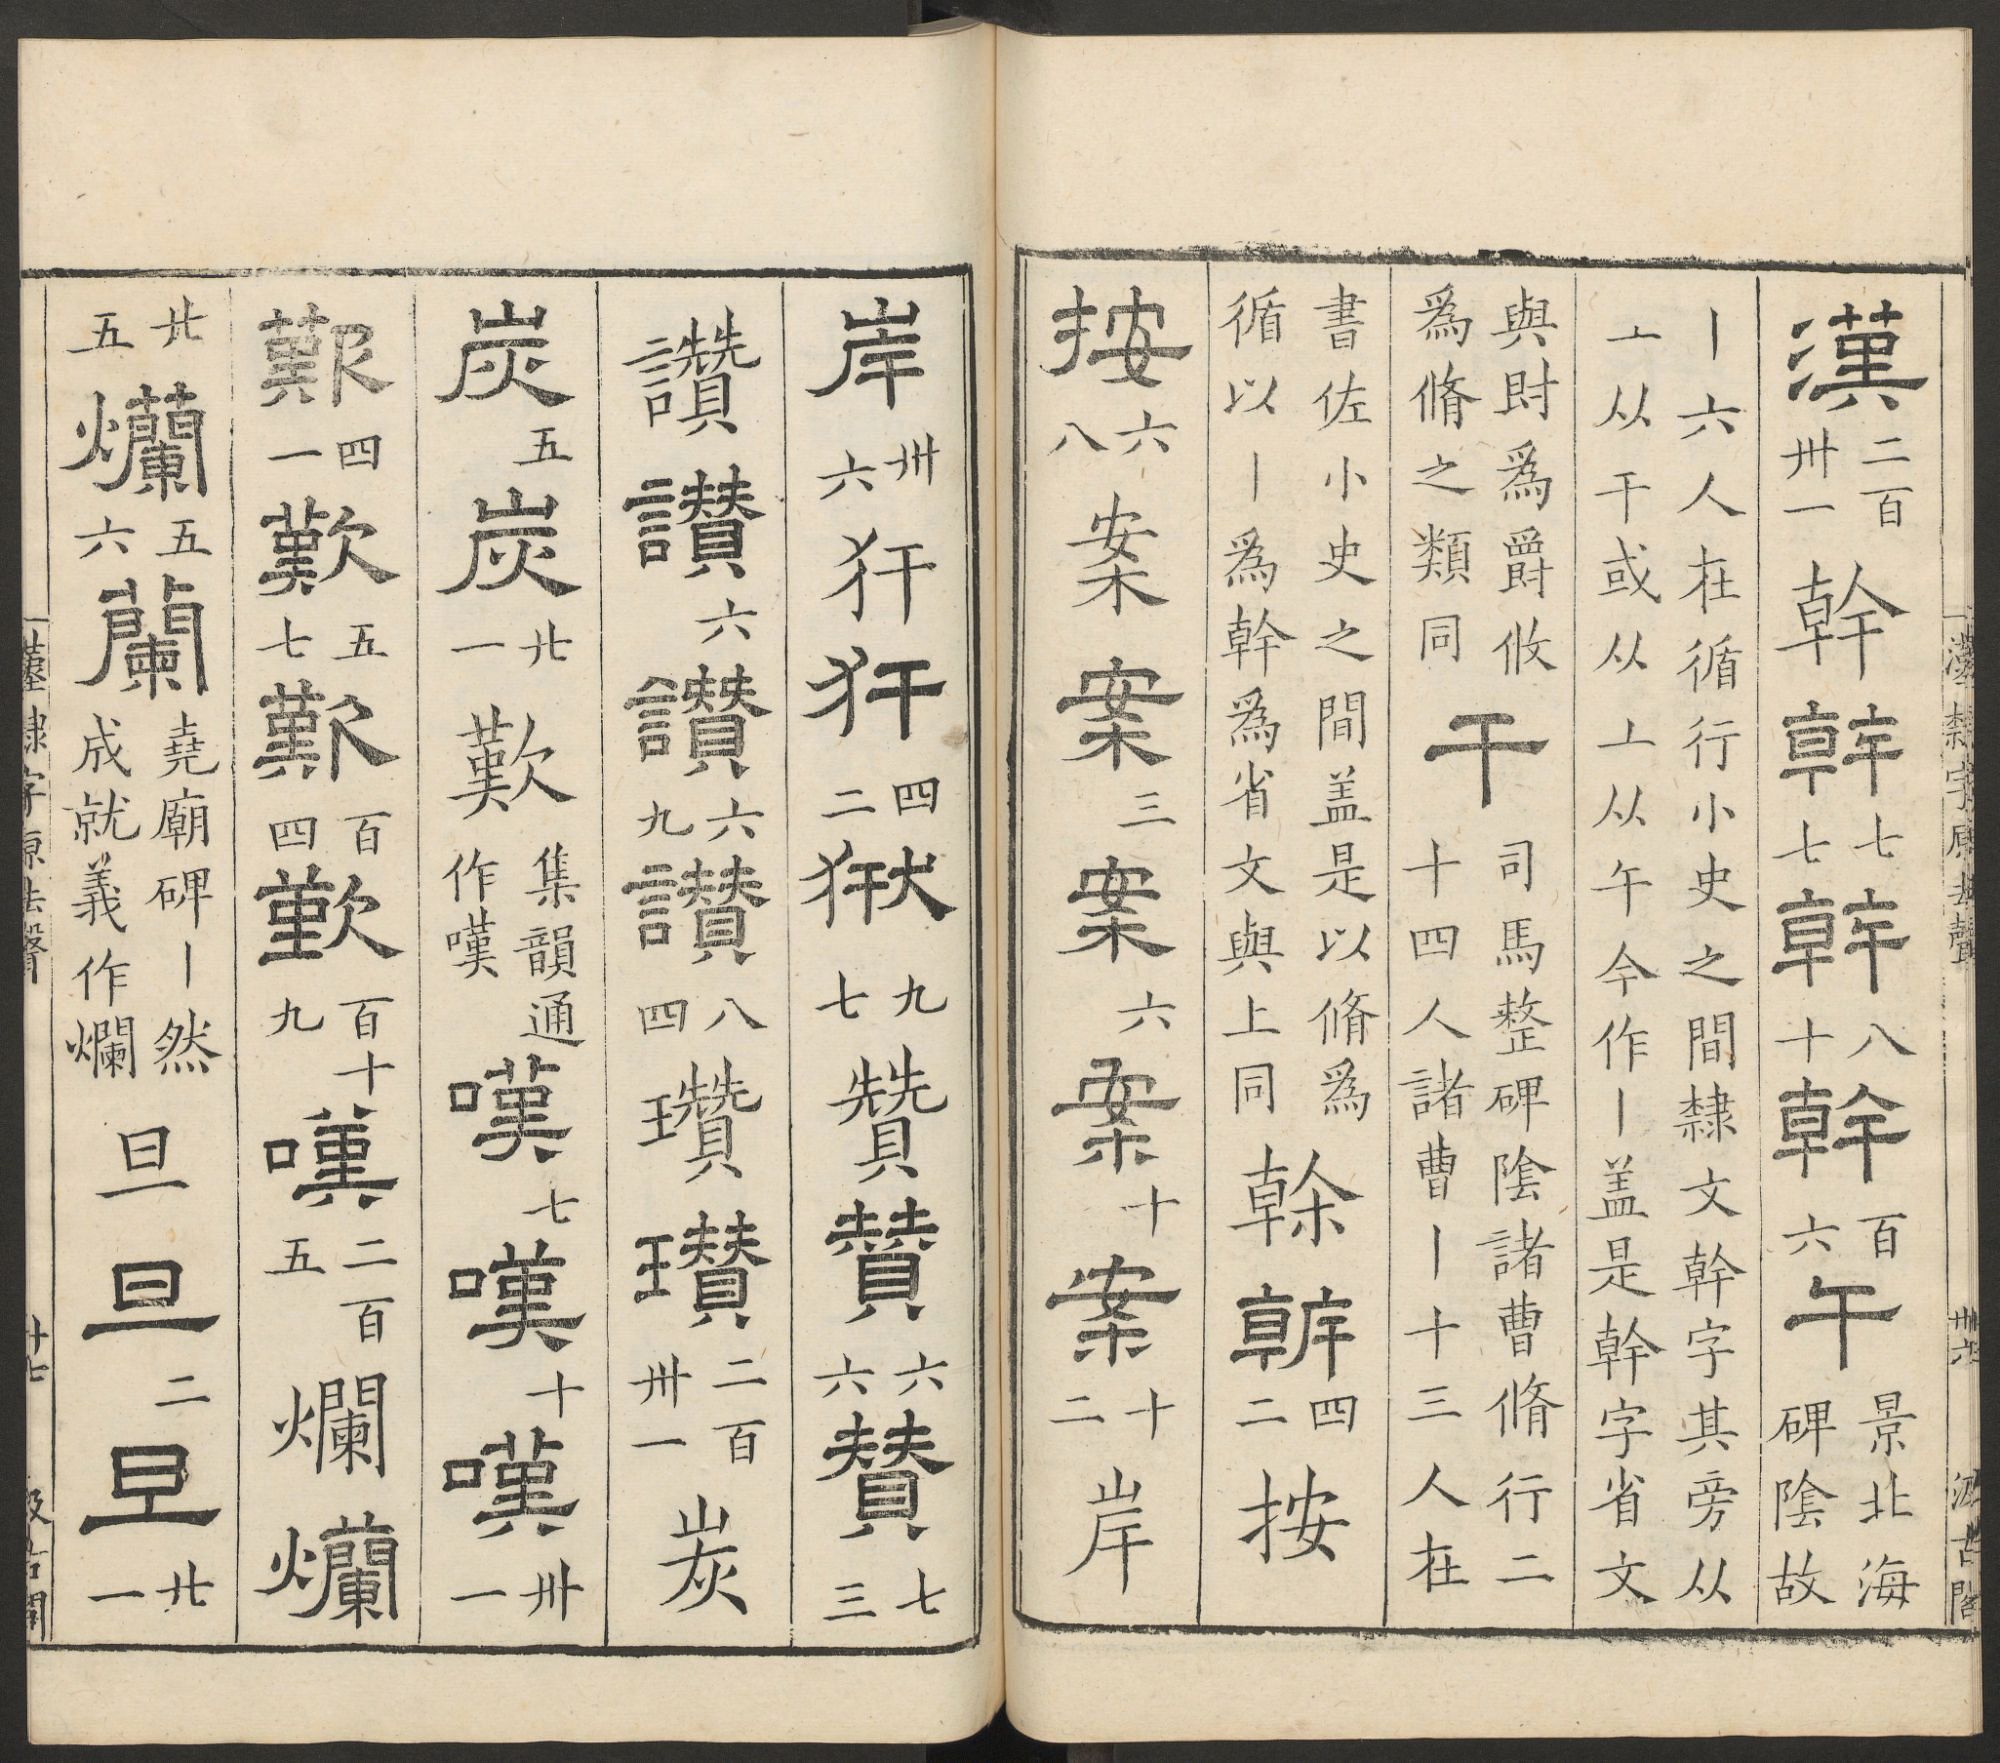 漢二百卅一幹幹七七幹八十幹百六午景北海碑陰故
丨六人在循行小史之間隸文幹字其旁从
亠从干或从𠂉从午今作丨盖是幹字省文
與財為爵攸為脩之類同干司馬整碑陰諸曹脩行二十四人諸曹丨十三人在
書佐小史之間盖是以脩為循以丨為幹為省文與上同榦榦四二按
按六八案案三案六案十案十二岸
岸卅六犴犴四二獄九七贊贊六六贊七三
讚讚六讚六九讚八四瓚瓚二百卅一炭
炭五炭廿一歎集韻通作嘆嘆七嘆十嘆卅一
歎四一歎五七歎百四歎百十九嘆二百五爛爛
廿五爛五六蘭堯廟碑丨然成就義作爛旦旦二旦廿一
漢隸字源去聲 卅六 汲古閣
漢隸字源去聲 卅七 汲古閣